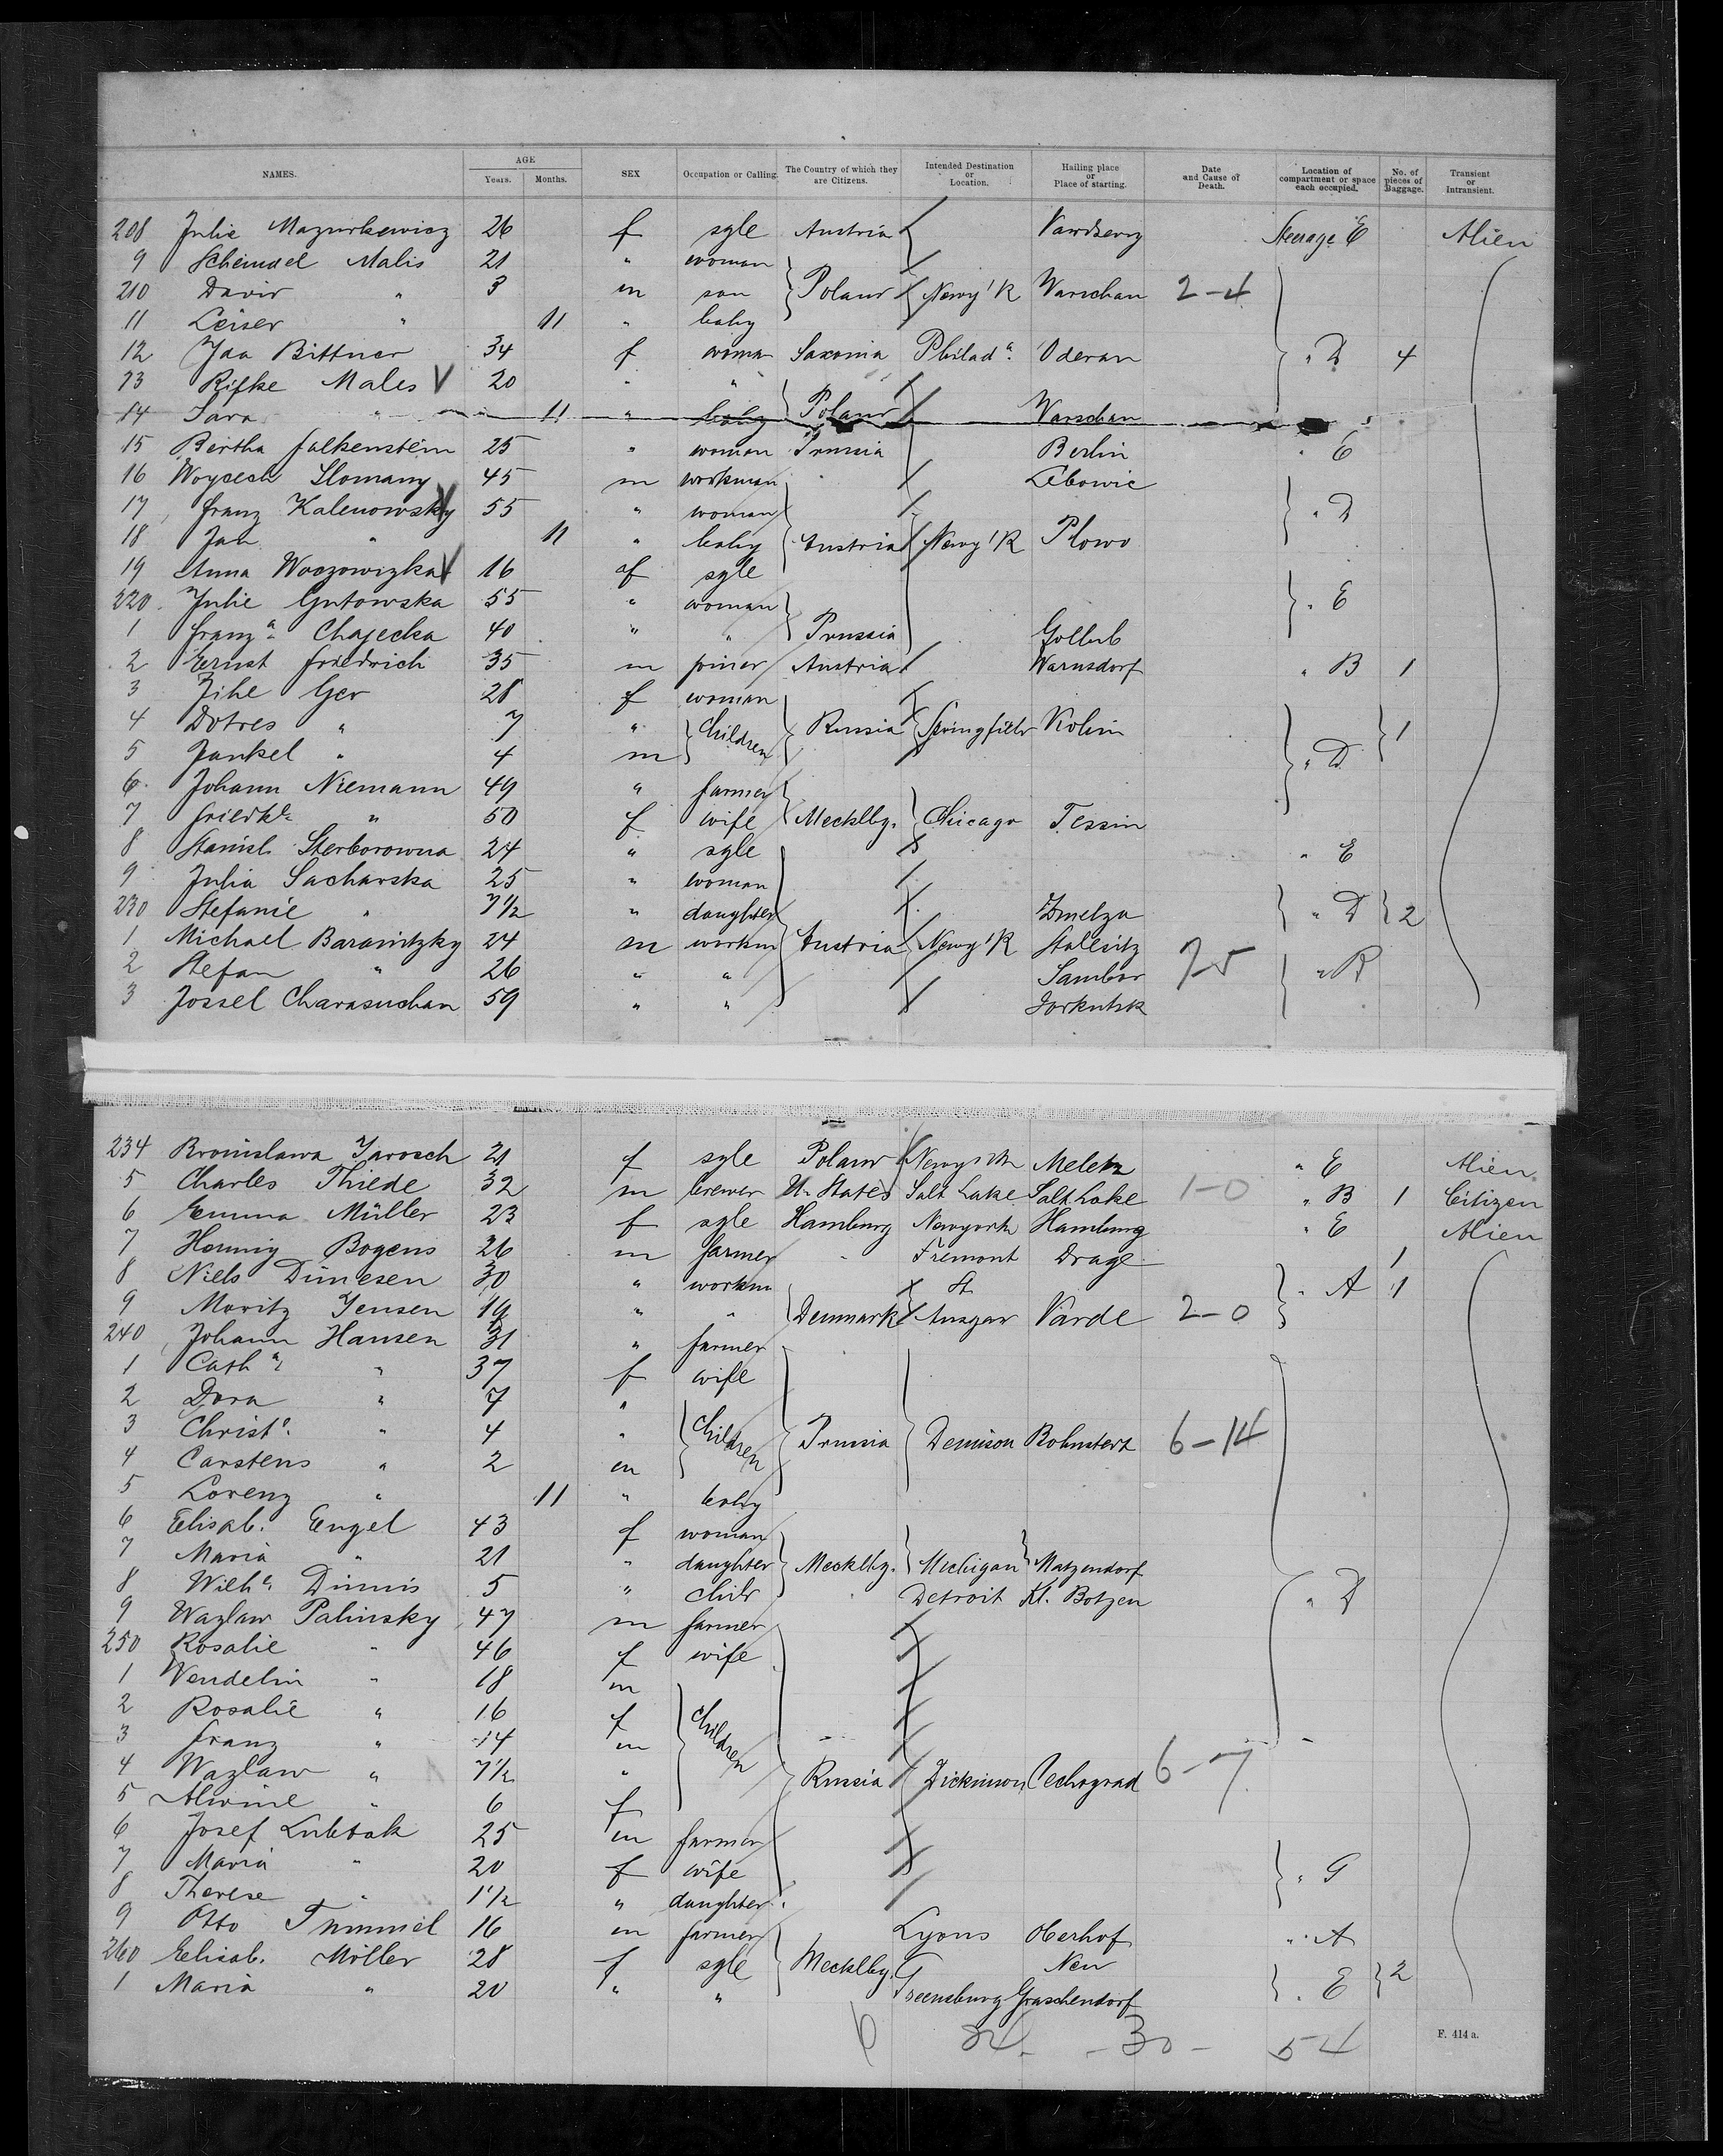 NAMES. AGE Years. Months. SEX Occupation or Calling. The Country of which they are Citizens. Intended Destination or Location. Hailing place or Place of starting. Date and Cause of Death. Location of compartment or space each occupied. No. of pieces of Baggage. Transient or Intransient.
208 Julie Mazurkewicz 26 f sgle Austria Steerage E Alien
9 Scheindel Malis 21 " woman
210 David " 3 m son Poland Newy'k Warschau 2-4
11 Leiser " 11 " baby
12 Ida Bittner 34 f woman Saxonia Philad a. Oderan " D 4
13 Rifke Males V 20 " "
14 Sara " 11 " baby Poland Warschau
15 Bertha Falkenstein 25 " woman Prussia Berlin " E
16 Woycech Slomany 45 m workman " Libowic
17 Franz Kalenowsky 55 " woman " D
18 Jan " 11 " baby Austria Newy'k Plowo
19 Anna Woczowizka 16 f sgle
220 Julie Gutowska 55 " woman " E
1 Franz a. Chajecka 40 " " Prussia Gollub
2 Ernst Friedrich 35 m joiner Austria Warnsdorf " B 1
3 Zihe Ger 28 f woman
4 Dotres " 7 " children Russia Springfield Kolim 1
5 Jankel " 4 m " D
6 Johann Niemann 49 " farmer
7 Friedke " 50 f wife Mecklbg. Chicago Tessin
8 Stanisl. Sterborowna 24 " sgle " E
9 Julia Sacharska 25 " woman
230 Stefanie " 7 1/2 " daughter Zmelza " D 2
1 Michael Baranitzky 24 m workm Austria Newy'k Stallsitz
2 Stefan " 26 " " Sambor 7-5 " B
3 Jossel Charasuchan 59 " " Jorkutsk
234 Bronislawa Jarosch 21 f sgle Poland Newyork " E Alien
5 Charles Thiede 32 m brewer U. States Salt Lake Salt Lake 1-0 " B 1 Citizen
6 Emma Müller 23 f sgle Hamburg Newyork Hamburg " E Alien
7 Henning Bogens 26 m farmer " Fremont Drage 1
8 Niels Dinesen 30 " workm St. " A 1
9 Moritz Jensen 19 " " Denmark Ansgar Varde 2-0
240 Johann Hansen 31 " farmer
1 Cath a. " 37 f wife
2 Dora " 7 "
3 Christ e. " 4 " children Prussia Denison Bohmstert 6-14
4 Carstens " 2 m
5 Lorenz " 11 " baby
6 Elisab. Engel 43 f woman
7 Maria " 21 " daughter Mecklbg. Michigan Matzendorf
8 Wilh e. Dinnis 5 " child " Detroit Kl. Botzen " D
9 Wazlaw Palinsky 47 m farmer
250 Rosalie " 46 f wife
1 Wendelin " 18 m
2 Rosalie " 16 f children
3 Franz " 14 m
4 Wazlaw " 7 1/2 " Russia Dickinson Cechograd 6-7
5 Alwine " 6 f
6 Josef Lubtak 25 m farmer
7 Maria " 20 f wife " G
8 Therese " 1 1/2 " daughter
9 Otto Trummel 16 m farmer Lyons Herhof " A
260 Elisab. Möller 28 f sgle Mecklbg. Neu
1 Maria " 20 " " Greensburg Graschendorf " E 2
6 84 - 30 - 54
F. 414 a.